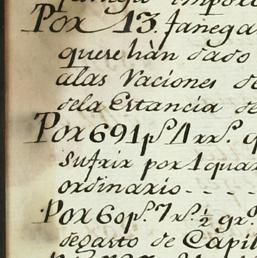 Por 13. fanega
que se hàn dado
alas Raciones de
dela Estancia de
Por 691 p.s 4 rr.s q
sufrir por 1 quar
ordinario - - - -
Por 60 p.s 7 r.s ½ gr.s
degasto de Capil